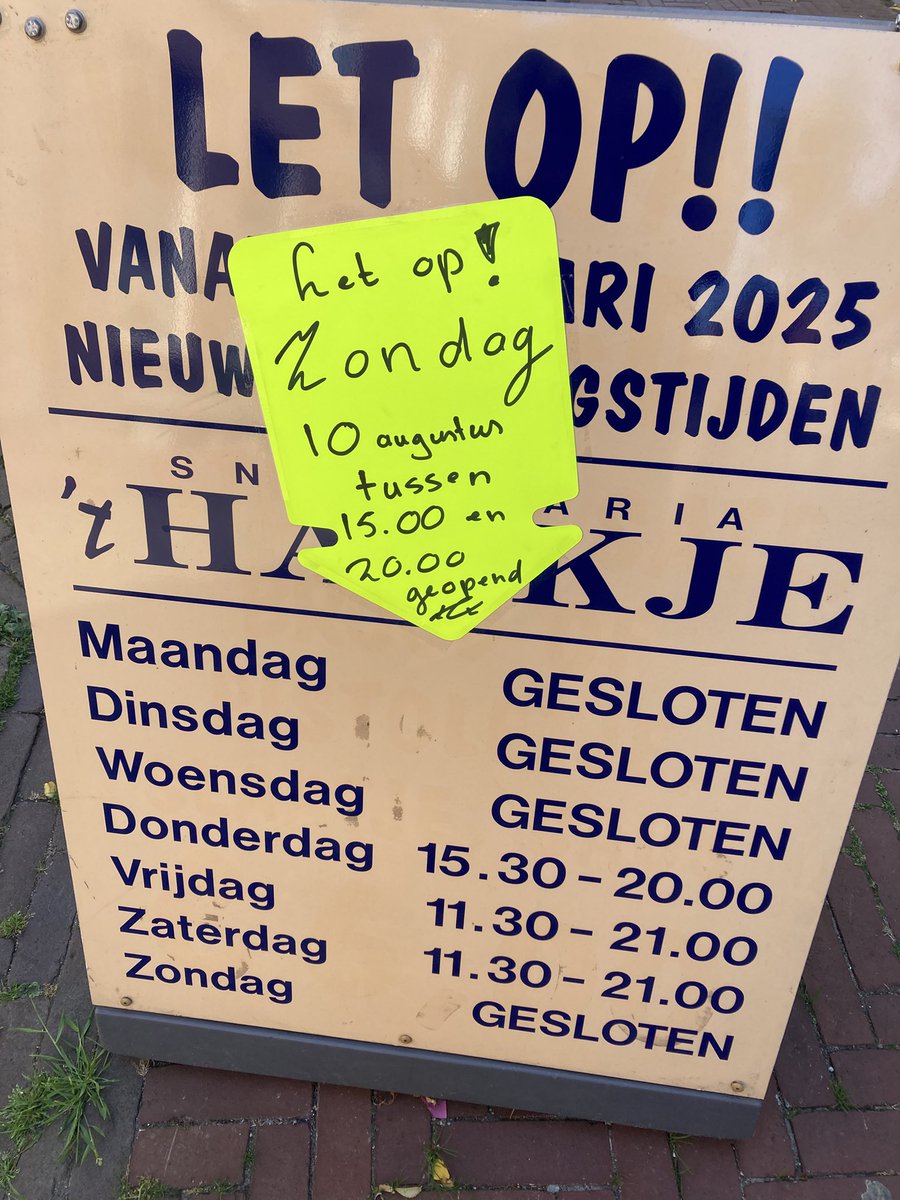 LET OP!!
VANA ARI 2025
NIEUW GSTIJDEN
Let op!
Zondag
10 augustus
tussen
15.00 en
20.00
geopend
SN ARIA
't HA KJE
Maandag GESLOTEN
Dinsdag GESLOTEN
Woensdag GESLOTEN
Donderdag 15.30 - 20.00
Vrijdag 11.30 - 21.00
Zaterdag 11.30 - 21.00
Zondag GESLOTEN